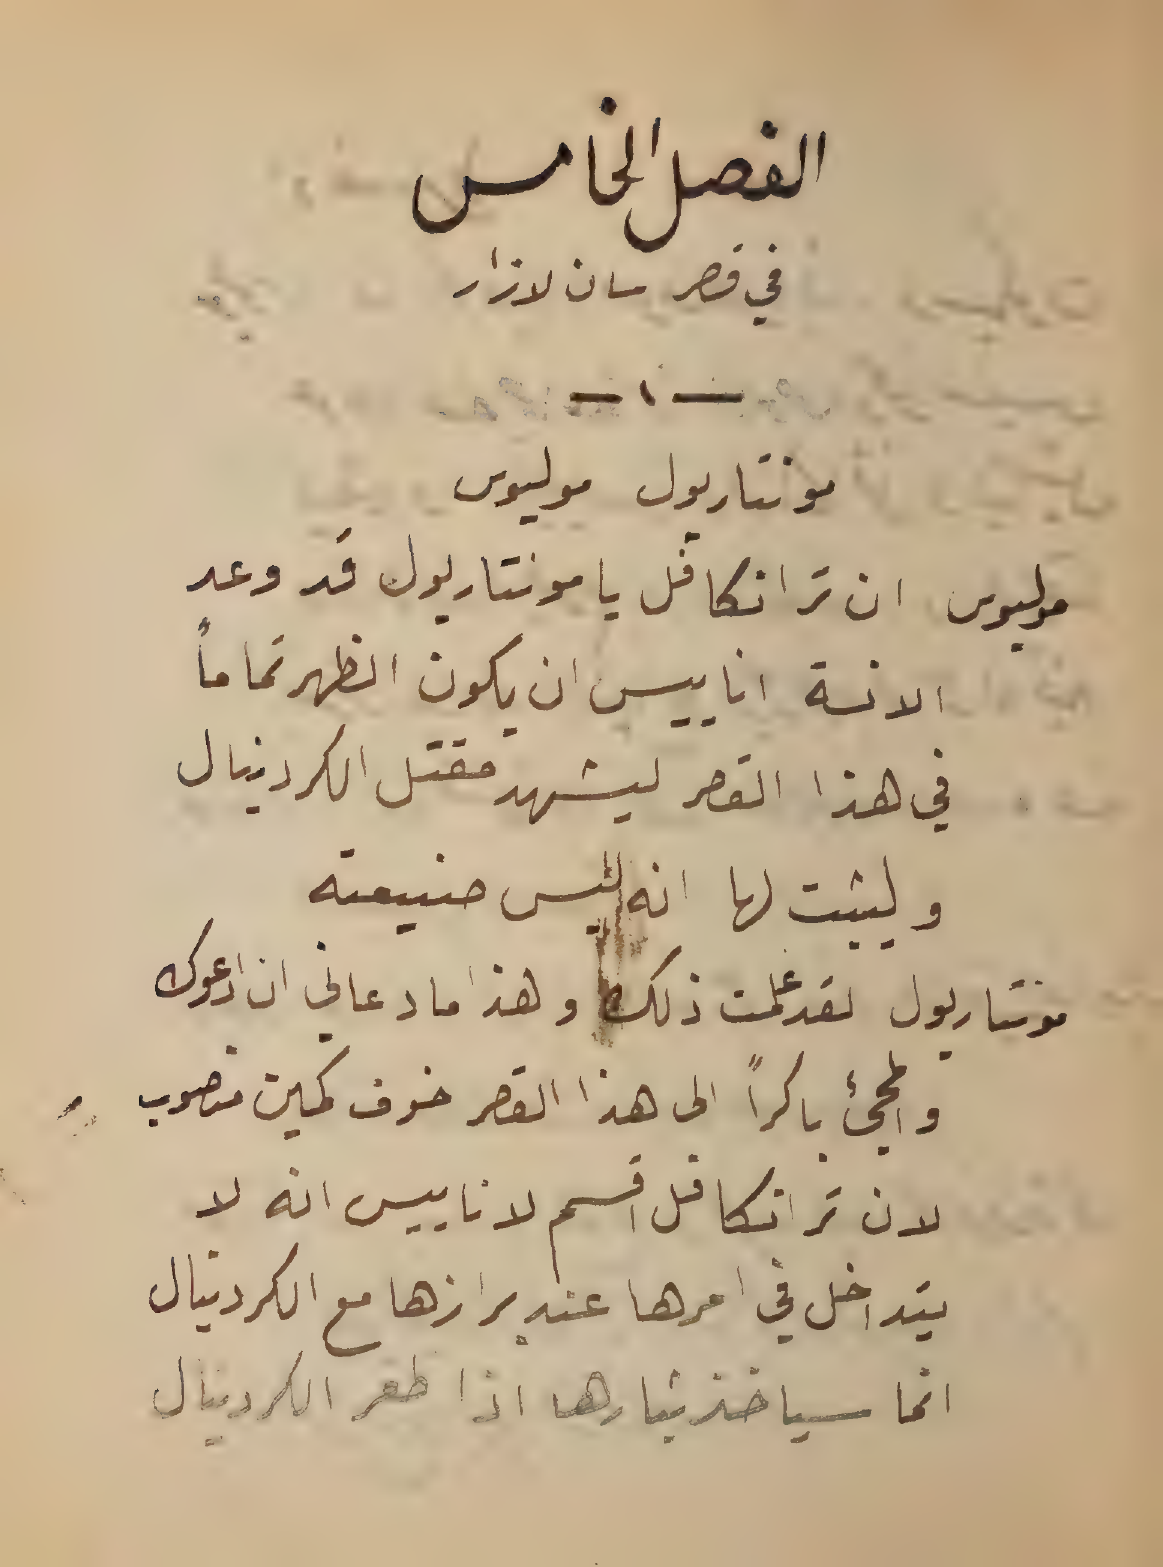 الفصل الخامس
في قصر سان لازار
— ١ —
مونتاريول موليوس
موليوس ان ترانكافل يا مونتاريول قد وعد
الانسة اناييس ان يكون الظهر تماماً
في هذا القصر ليشهد مقتل الكردينال
وليثبت لها انه ليس صنيعته
مونتاريول لقد علمت ذلك وهذا ما دعاني ان ادعوك
والمجئ باكراً الى هذا القصر خوف كمين منصوب
لان ترانكافل اقسم لاناييس انه لا
يتداخل في امرها عند برازها مع الكردينال
انما سياخذ بثارها اذا ظفر الكردينال